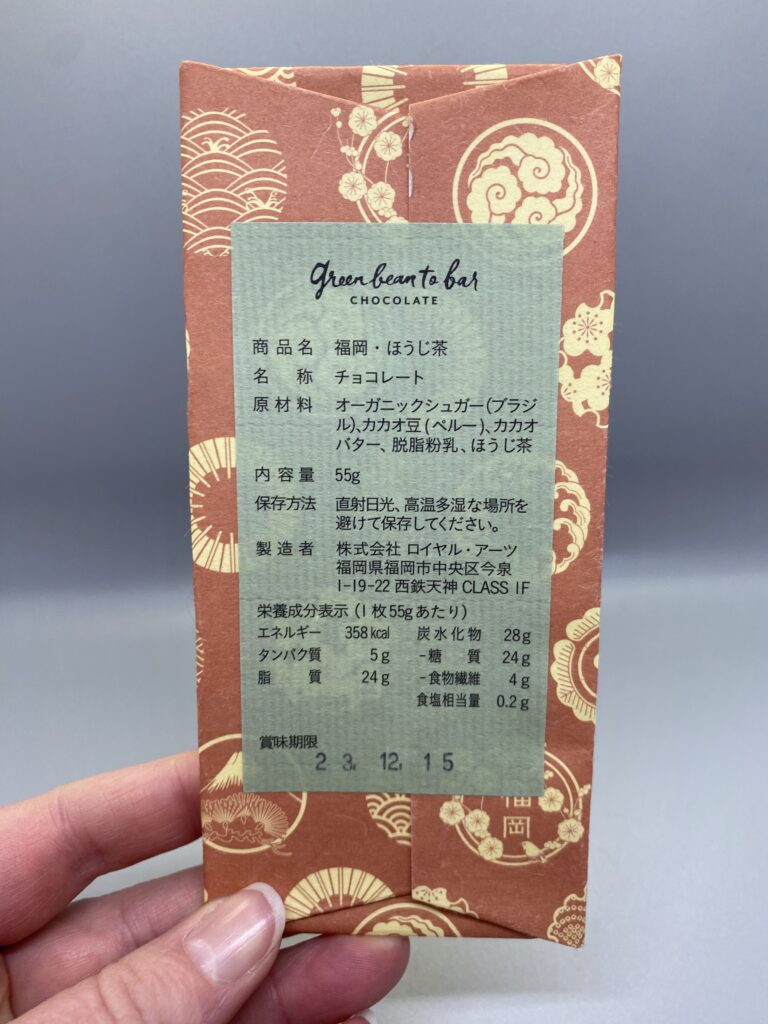 green bean to bar
CHOCOLATE
商品名 福岡・ほうじ茶
名称 チョコレート
原材料 オーガニックシュガー(ブラジ
ル)、カカオ豆(ペルー)、カカオ
バター、脱脂粉乳、ほうじ茶
内容量 55g
保存方法 直射日光、高温多湿な場所を
避けて保存してください。
製造者 株式会社 ロイヤル・アーツ
福岡県福岡市中央区今泉
1-19-22 西鉄天神 CLASS 1F
栄養成分表示(1枚55gあたり)
エネルギー 358kcal 炭水化物 28g
タンパク質 5g -糖質 24g
脂質 24g -食物繊維 4g
食塩相当量 0.2g
賞味期限
23. 12. 15
福岡